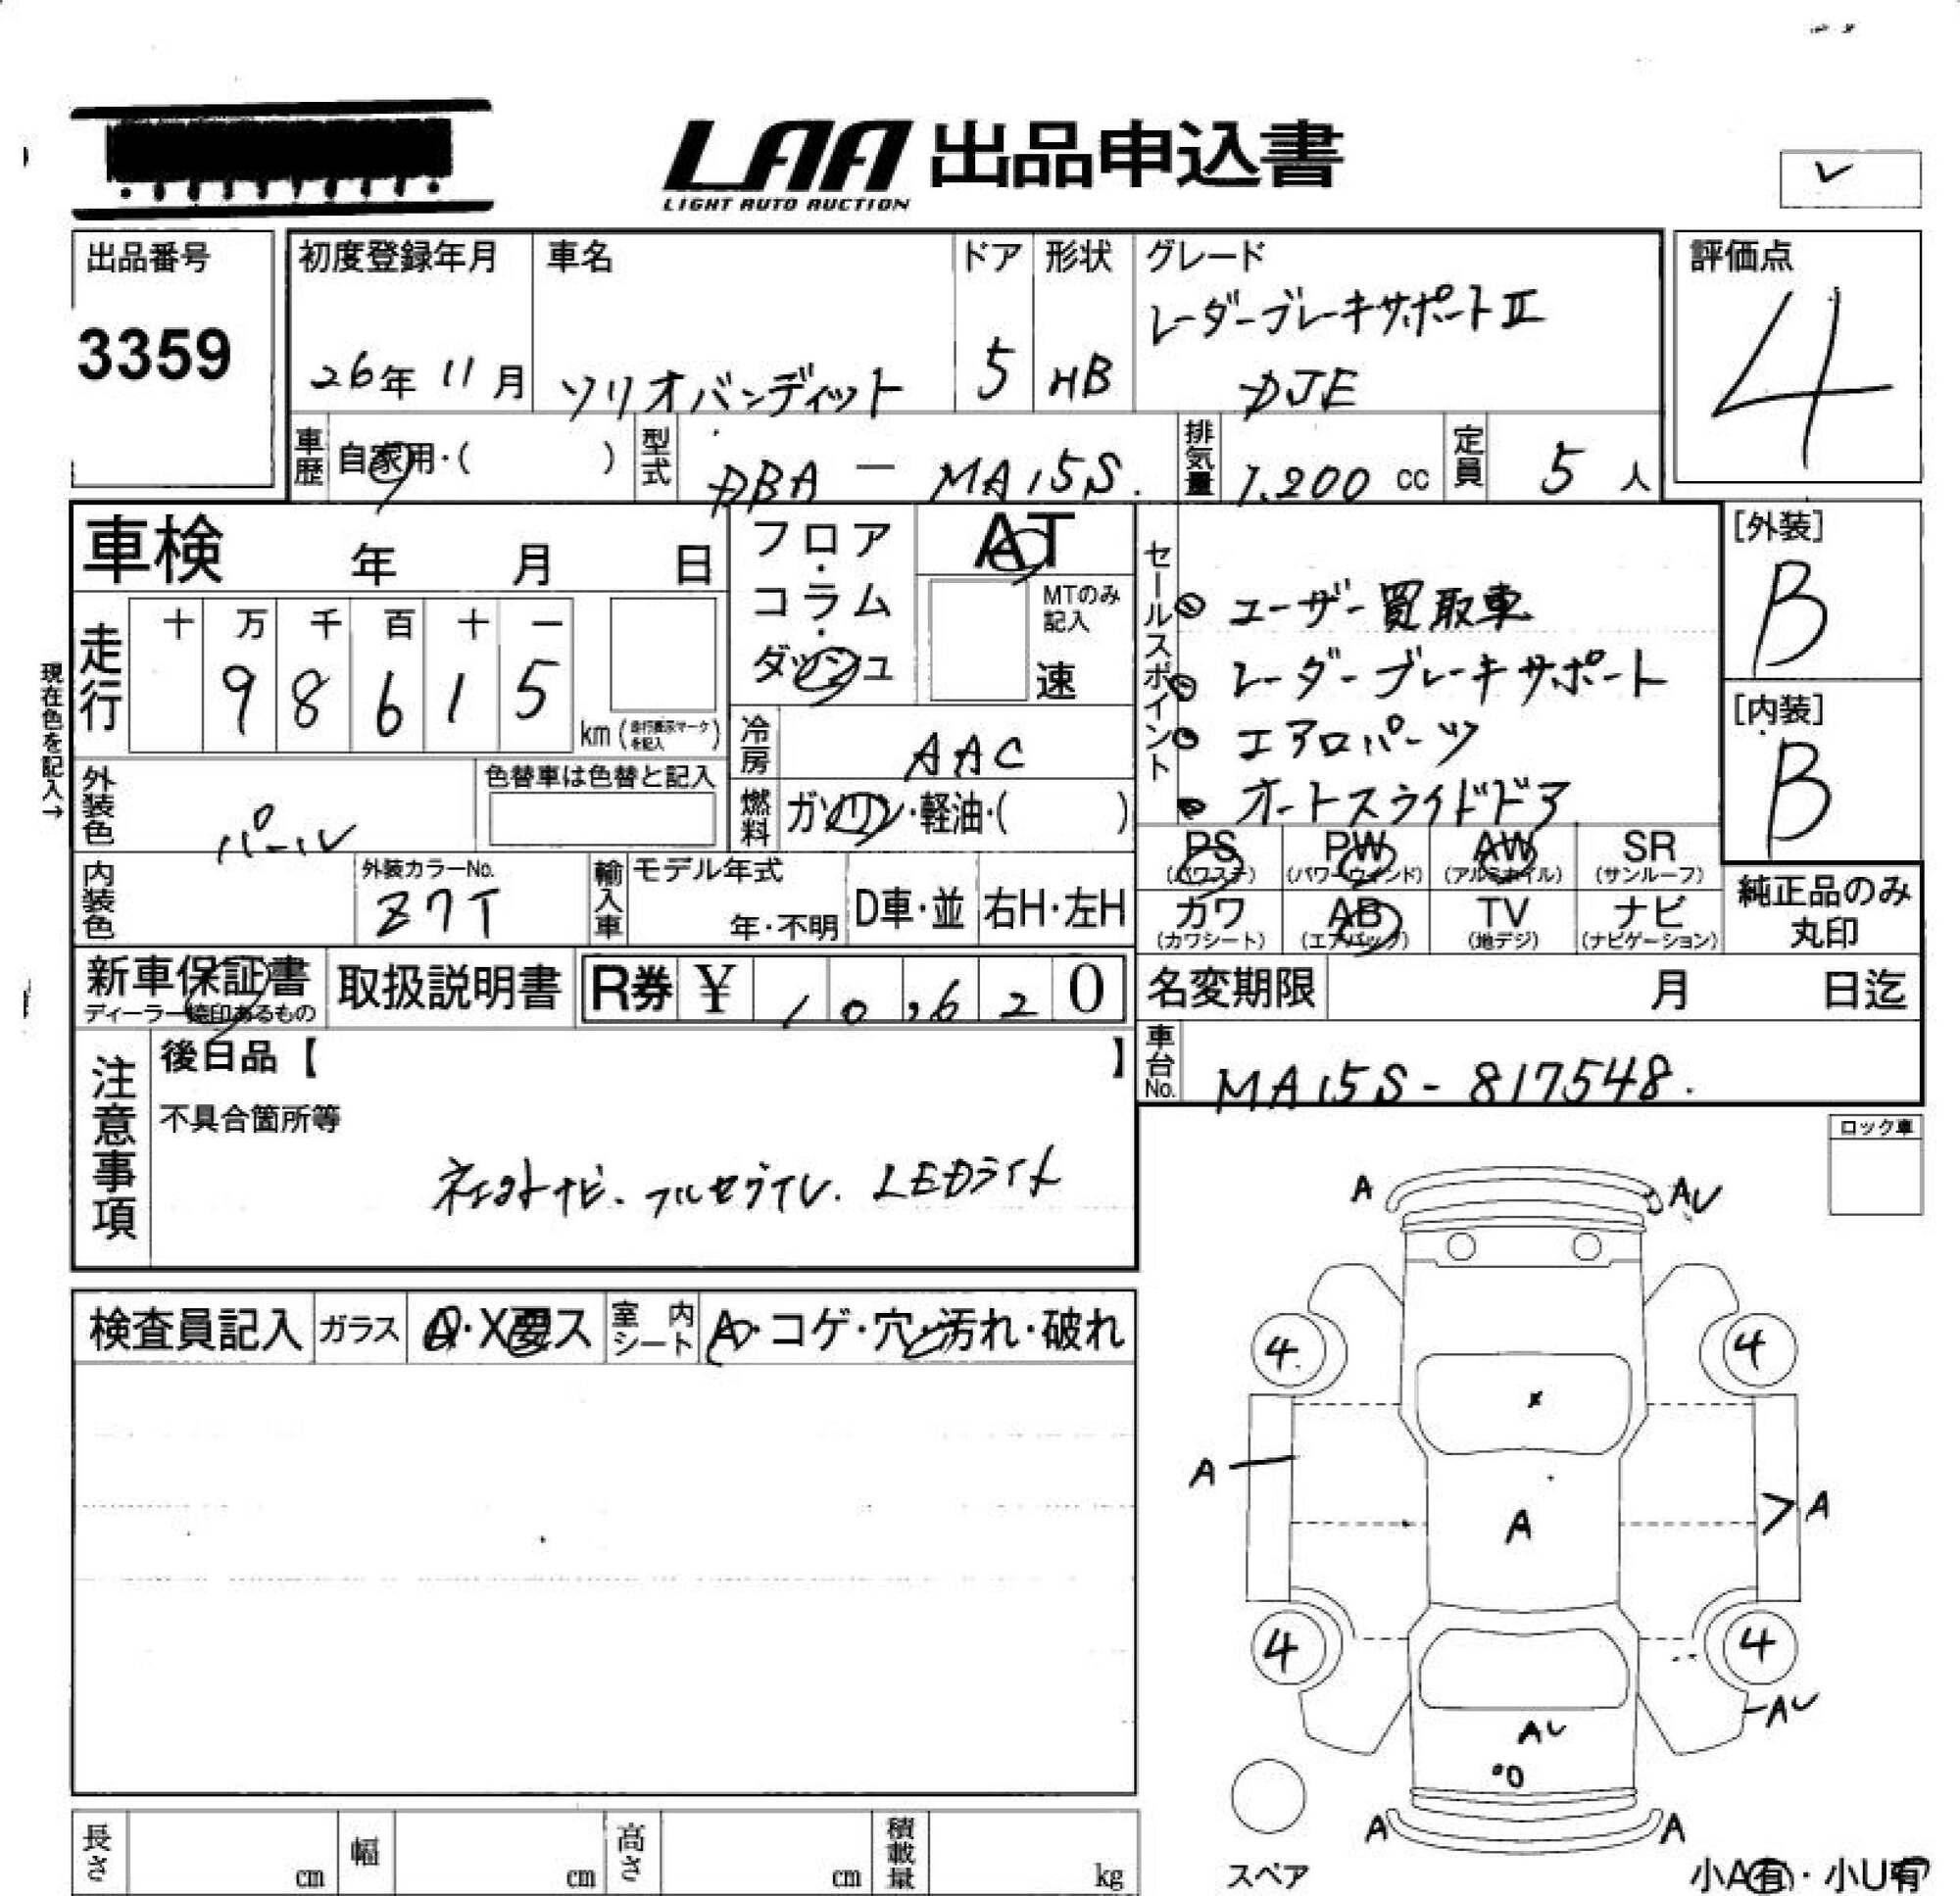 LAA 出品申込書
LIGHT AUTO AUCTION
出品番号
3359
初度登録年月
26年 11月
車名
ソリオバンディット
ドア
5
形状
HB
グレード
レーダーブレーキサポートⅡ
DJE
評価点
4
車歴 自家用・( )
型式 DBA - MA15S.
排気量 1,200 cc
定員 5 人
車検 年 月 日
フロア・コラム・ダッシュ
AT
MTのみ記入
速
走行
十 万 千 百 十 一
9 8 6 1 5
km (走行表示マークを記入)
現在色を記入→
冷房 AAC
外装色 パール
色替車は色替と記入
燃料 ガソリン・軽油・( )
内装色
外装カラーNo.
Z7T
輸入車
モデル年式
年・不明
D車・並
右H・左H
セールスポイント
ユーザー買取車
レーダーブレーキサポート
エアロパーツ
オートスライドドア
[外装]
B
[内装]
B
PS (パワステ)
PW (パワーウィンド)
AW (アルミホイル)
SR (サンルーフ)
カワ (カワシート)
AB (エアバック)
TV (地デジ)
ナビ (ナビゲーション)
純正品のみ
丸印
新車保証書
ディーラー捺印あるもの
取扱説明書
R券 ¥ 10,620
名変期限 月 日迄
車台No. MA15S-817548.
注意事項
後日品【 】
不具合箇所等
ナビ. フルセグTV. LEDライト
ロック車
検査員記入
ガラス A・X要ス
室内シート A・コゲ・穴・汚れ・破れ
A AV
4 4
x
A A A
4 4
AV AV
A A
スペア
小A有・小U有
長さ cm
幅 cm
高さ cm
積載量 kg